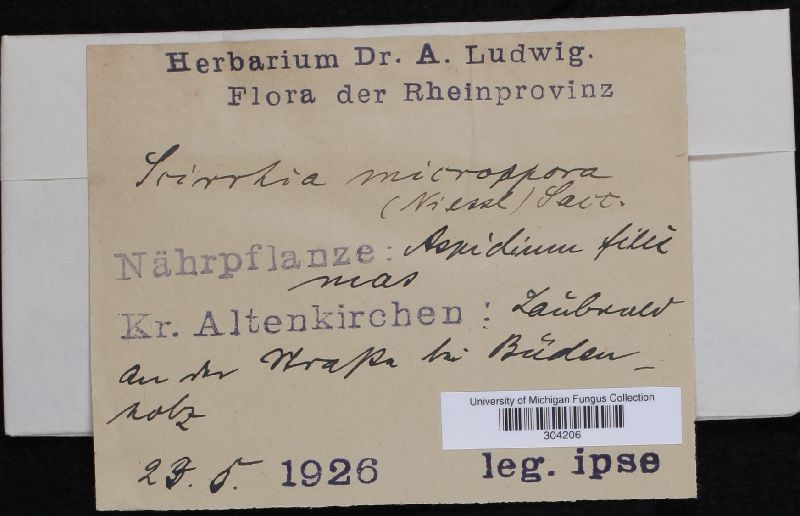 Herbarium Dr. A. Ludwig.
Flora der Rheinprovinz
Scirrhia microspora
(Niessl) Sacc.
Nährpflanze: Aspidium filix
mas
Kr. Altenkirchen: Laubwald
an der Straße bei Büden-
holz
5. 1926 leg. ipse
University of Michigan Fungus Collection
304206